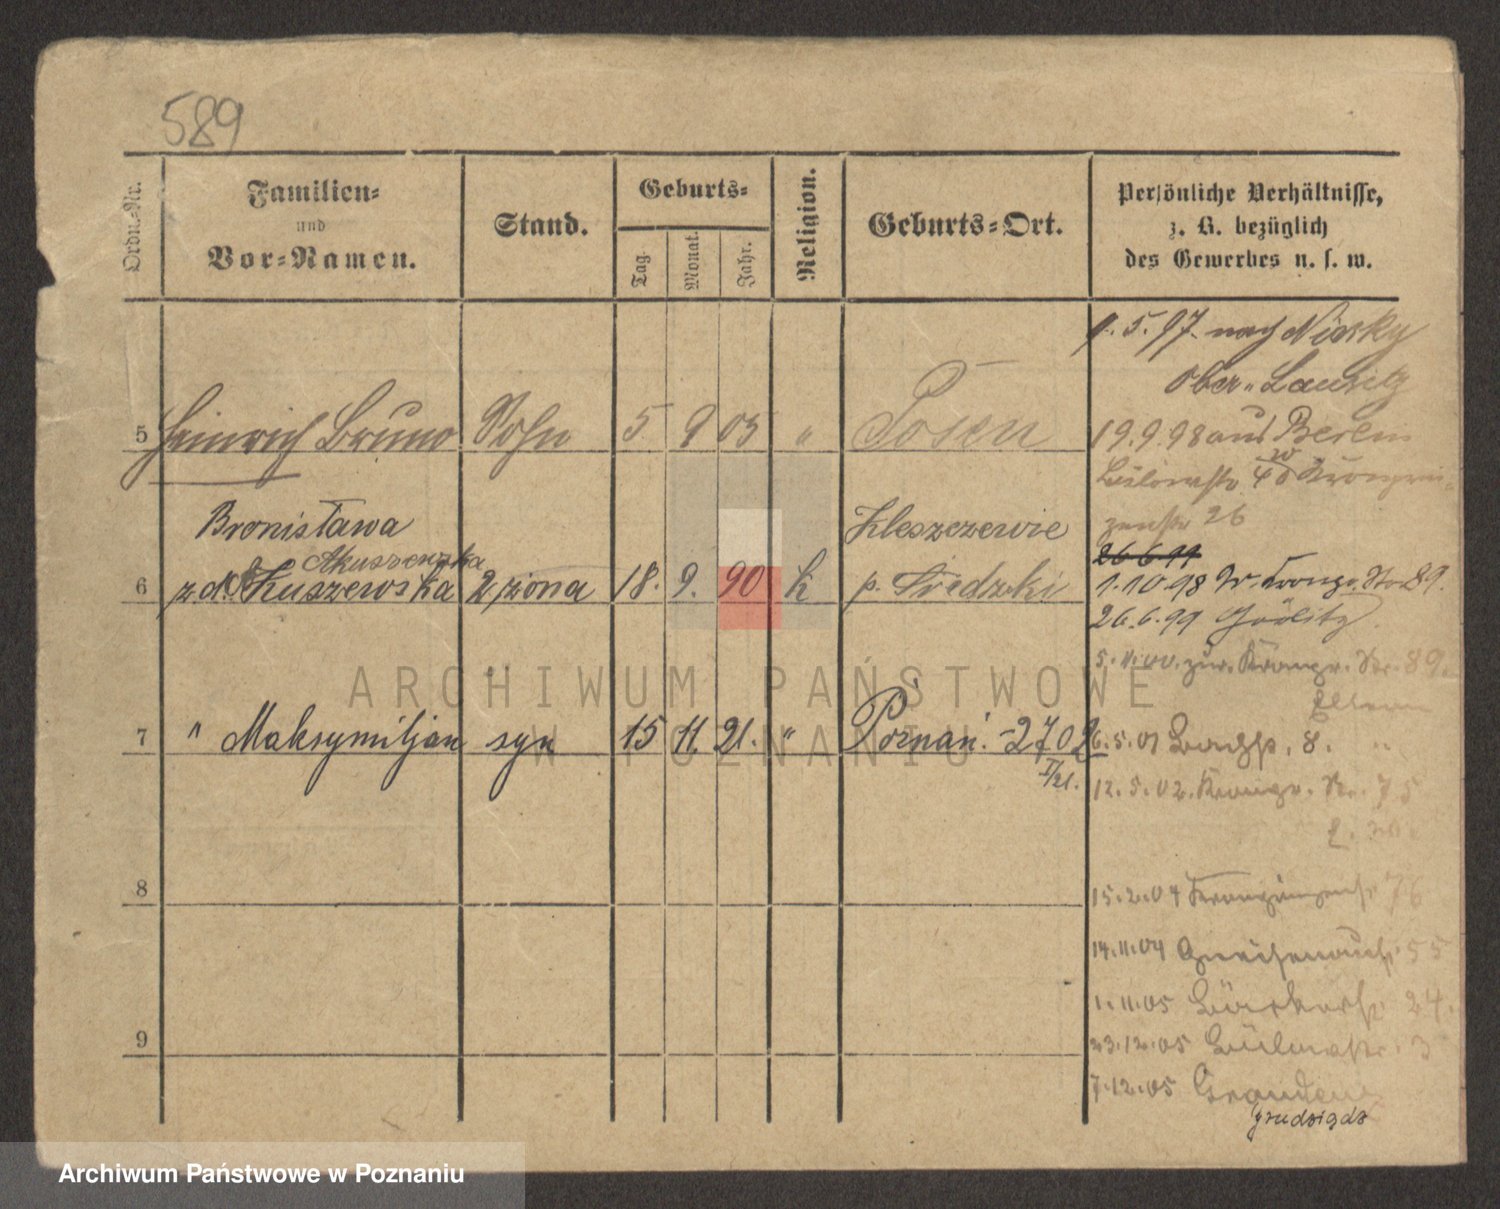 589
Ordn.-Nr.
Familien-
und
Vor-Namen.
Stand.
Geburts-
Tag.
Monat.
Jahr.
Religion.
Geburts-Ort.
Persönliche Verhältnisse,
z. B. bezüglich
des Gewerbes u. s. w.
1.5.97 nach Niesky
Ober-Lausitz
5 Heinrich Bruno Sohn 5 9 05 " Posen
19.9.98 aus Berlin
zenstr 26
Bronisława Kleszczewie
26.6.99
6 z d. Skuszewska 2 żona 18. 9. 90 k p. Średzki
1.10.98 Kronpr. Str 89.
26.6.99 Görlitz
5.11.00. zur. Kronpr. Str. 89.
Eltern
7 " Maksymiljan syn 15 11. 21. " Poznań. -2702
II/21.
6.5.01 8. "
12.5.02. Kronpr. Str. 75
8
15.2.04 Kronprinzenstr 76
14.11.04 Gneisenaustr. 55
9
1.11.05 24.
23.12.05 3
7.12.05 Graudenz
Grudziądz
ARCHIWUM PAŃSTWOWE
W POZNANIU
Archiwum Państwowe w Poznaniu